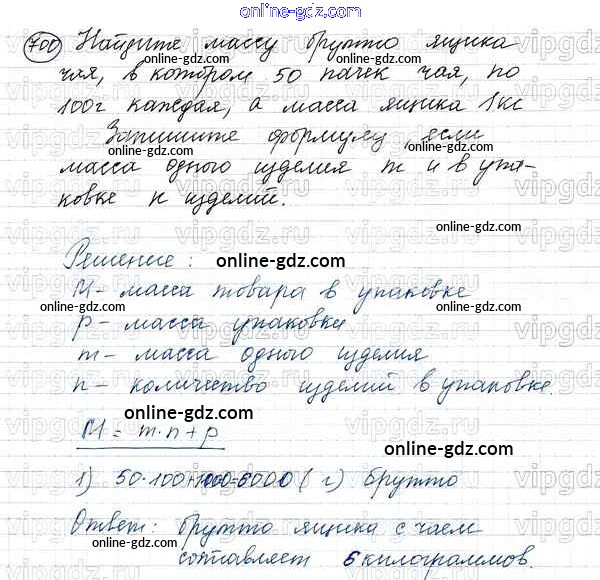 online-gdz.com
700 Найдите массу брутто ящика
чая, в котором 50 пачек чая, по
100г каждая, а масса ящика 1кг
Запишите формулу, если
масса одного изделия m и в упа-
ковке n изделий.
Решение:
M - масса товара в упаковке
p - масса упаковки
m - масса одного изделия
n - количество изделий в упаковке.
M = m·n + p
1) 50·100+1000=6000 (г) брутто
Ответ: брутто ящика с чаем
составляет 6 килограммов.